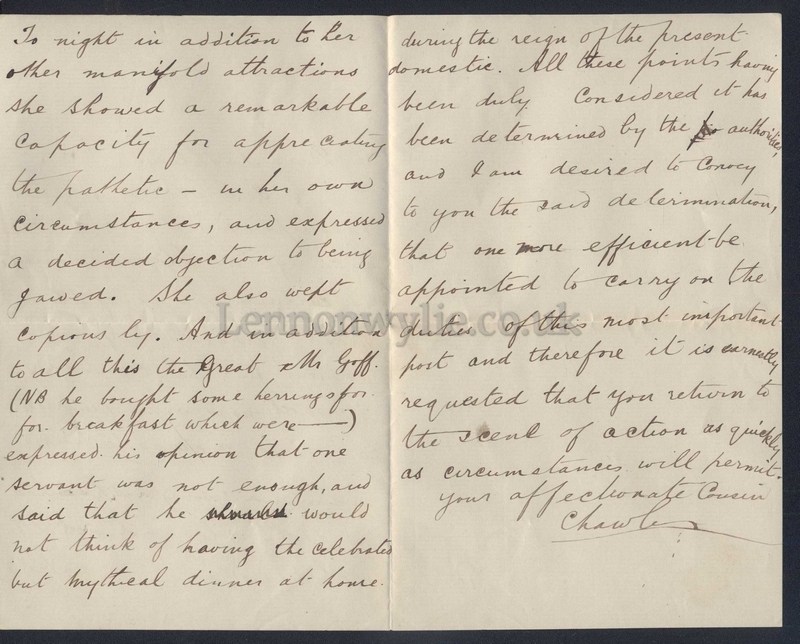 To night in addition to her
other manifold attractions
she showed a remarkable
capacity for appreciating
the pathetic — in her own
circumstances, and expressed
a decided objection to being
jawed. She also wept
copiously. And in addition
to all this the Great Mr Goff.
(NB he bought some herrings for
for breakfast which were ——)
expressed his opinion that one
servant was not enough, and
said that he would
not think of having the celebrated
but mythical dinner at home.
during the reign of the present
domestic. All these points having
been duly considered it has
been determined by the authorities,
and I am desired to convey
to you the said determination,
that one more efficient be
appointed to carry on the
duties of this most important
post and therefore it is earnestly
requested that you return to
the scene of action as quickly
as circumstances will permit.
your affectionate Cousin
Lennonwylie.co.uk